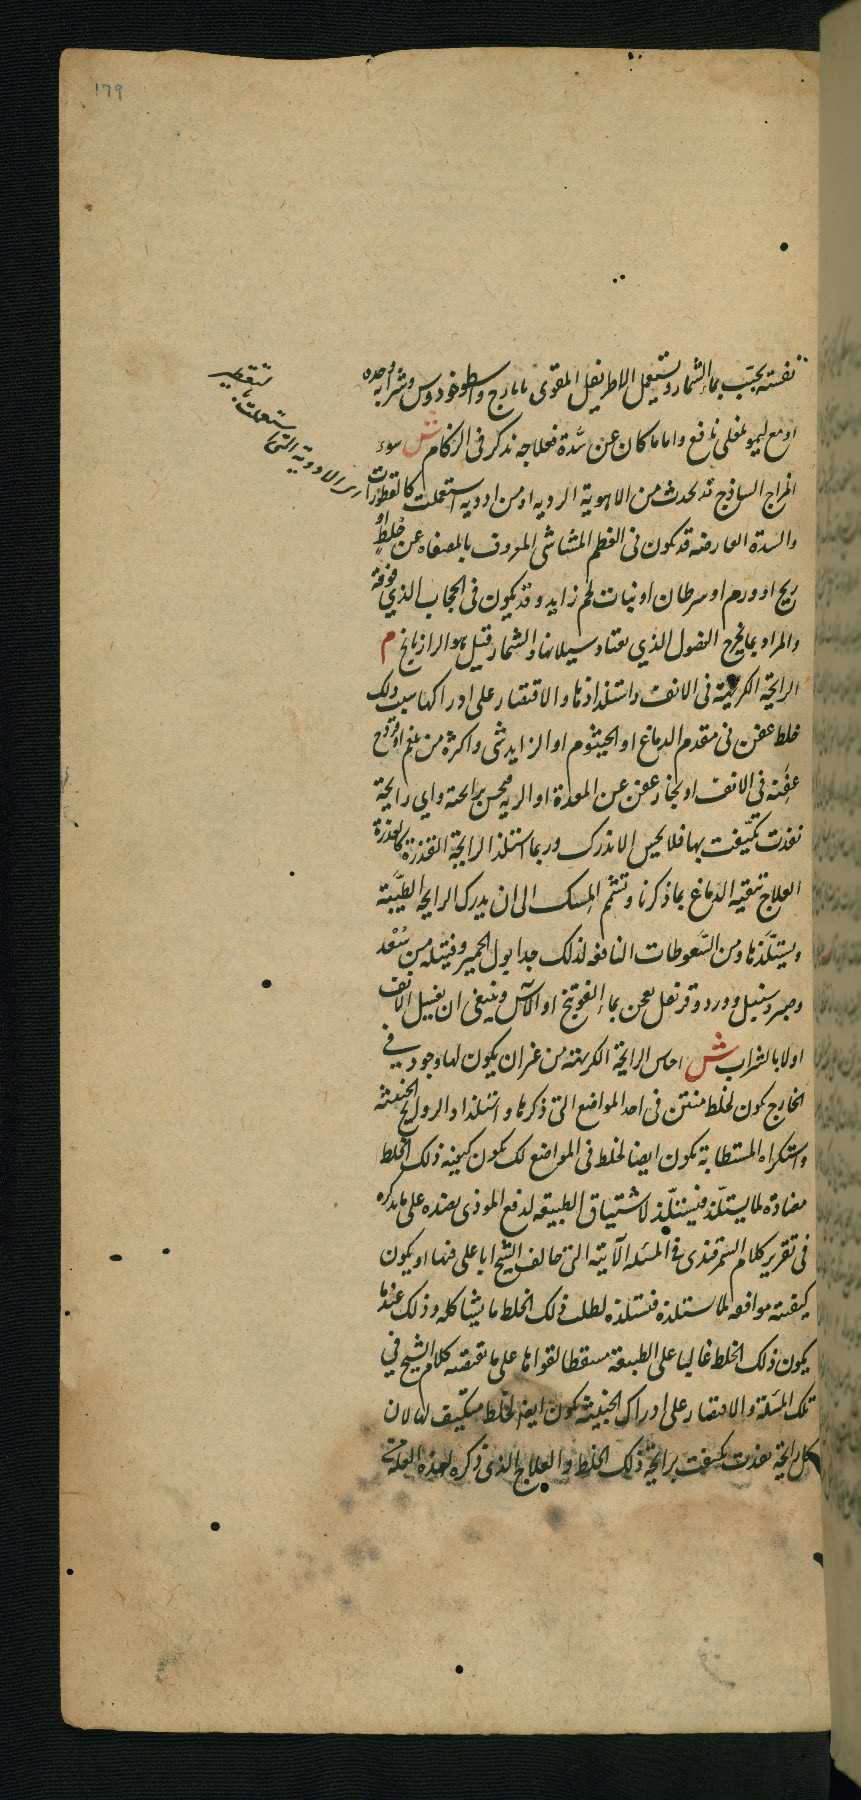 179
تنقيته بحب بماء الشمار ويستعمل الاطريفل المقوى بايارج واسطوخودوس وشرابه وحده
او مع ليمو لمغلى نافع واما ما كان عن سدة فعلاجه نذكر فى الزكام ش سوء
المزاج الساذج قد يحدث من الاهوية الرديه او من ادويه استعملت كالقطورات
والسدة العارضه قد تكون فى العظم المشاشى المعروف بالمصفاه عن خلط او
ريح او ورم او سرطان او نبات لحم زايد وقد يكون فى الحجاب الذي فوقه
والمراد بما يخرج الفضول الذي يعتاد سيلانها والشمار قيل هو الرازيانج م
الرايحة الكريهة فى الانف واستلذاذها والاقتصار على ادراكها سبب ذلك
خلط عفن فى مقدم الدماغ او الخيشوم او الزايدتين واكثره من بلغم او قروح
عفنه فى الانف او بخار عفن عن المعدة او الريه فيحس برايحته واي رايحة
نفذت تكيفت بها فلا يحس الا بذلك وربما استلذ الرايحة القذرة كالعذرة
العلاج تنقيه الدماغ بما ذكرنا وتشم المسك الى ان يدرك الرايحه الطيبة
ويستلذها ومن السعوطات النافعه لذلك جدا بول الحمير وفتيله من سعد
وصبر وسنبل وورد وقرنفل يعجن بماء الفوتنج او الآس وينبغى ان يغسل الانف
اولا بالشراب ش احساس الرايحة الكريهة من غير ان يكون لها وجود في
الخارج يكون لخلط منتن فى احد المواضع التى ذكرها واستلذاذ الروايح الخبيثه
واستكراه المستطابة يكون ايضا لخلط فى المواضع لكن يكون كيفيه ذلك الخلط
مضادة لما يستلذ فيستلذ لاشتياق الطبيعه لدفع الموذى بضده على ما يذكره
فى تقرير كلام السمرقندى فى المسئله الآتيه التى خالف الشيخ ابا على فيها او يكون
كيفيته موافقه لما استلذه فيستلذه لطلب ذلك الخلط ما يشاكله وذلك عندما
يكون ذلك الخلط غالبا على الطبيعة مسقطا لقواها على ما يقتضيه كلام الشيخ في
تلك المسئلة والاقتصار على ادراك الخبيثه يكون ايضا لخلط متكيف بها لان
كل رايحة نفذت تكيفت برايحة ذلك الخلط والعلاج الذى ذكره لهذه العلة
من الادوية التى
استعملت
لتقطير